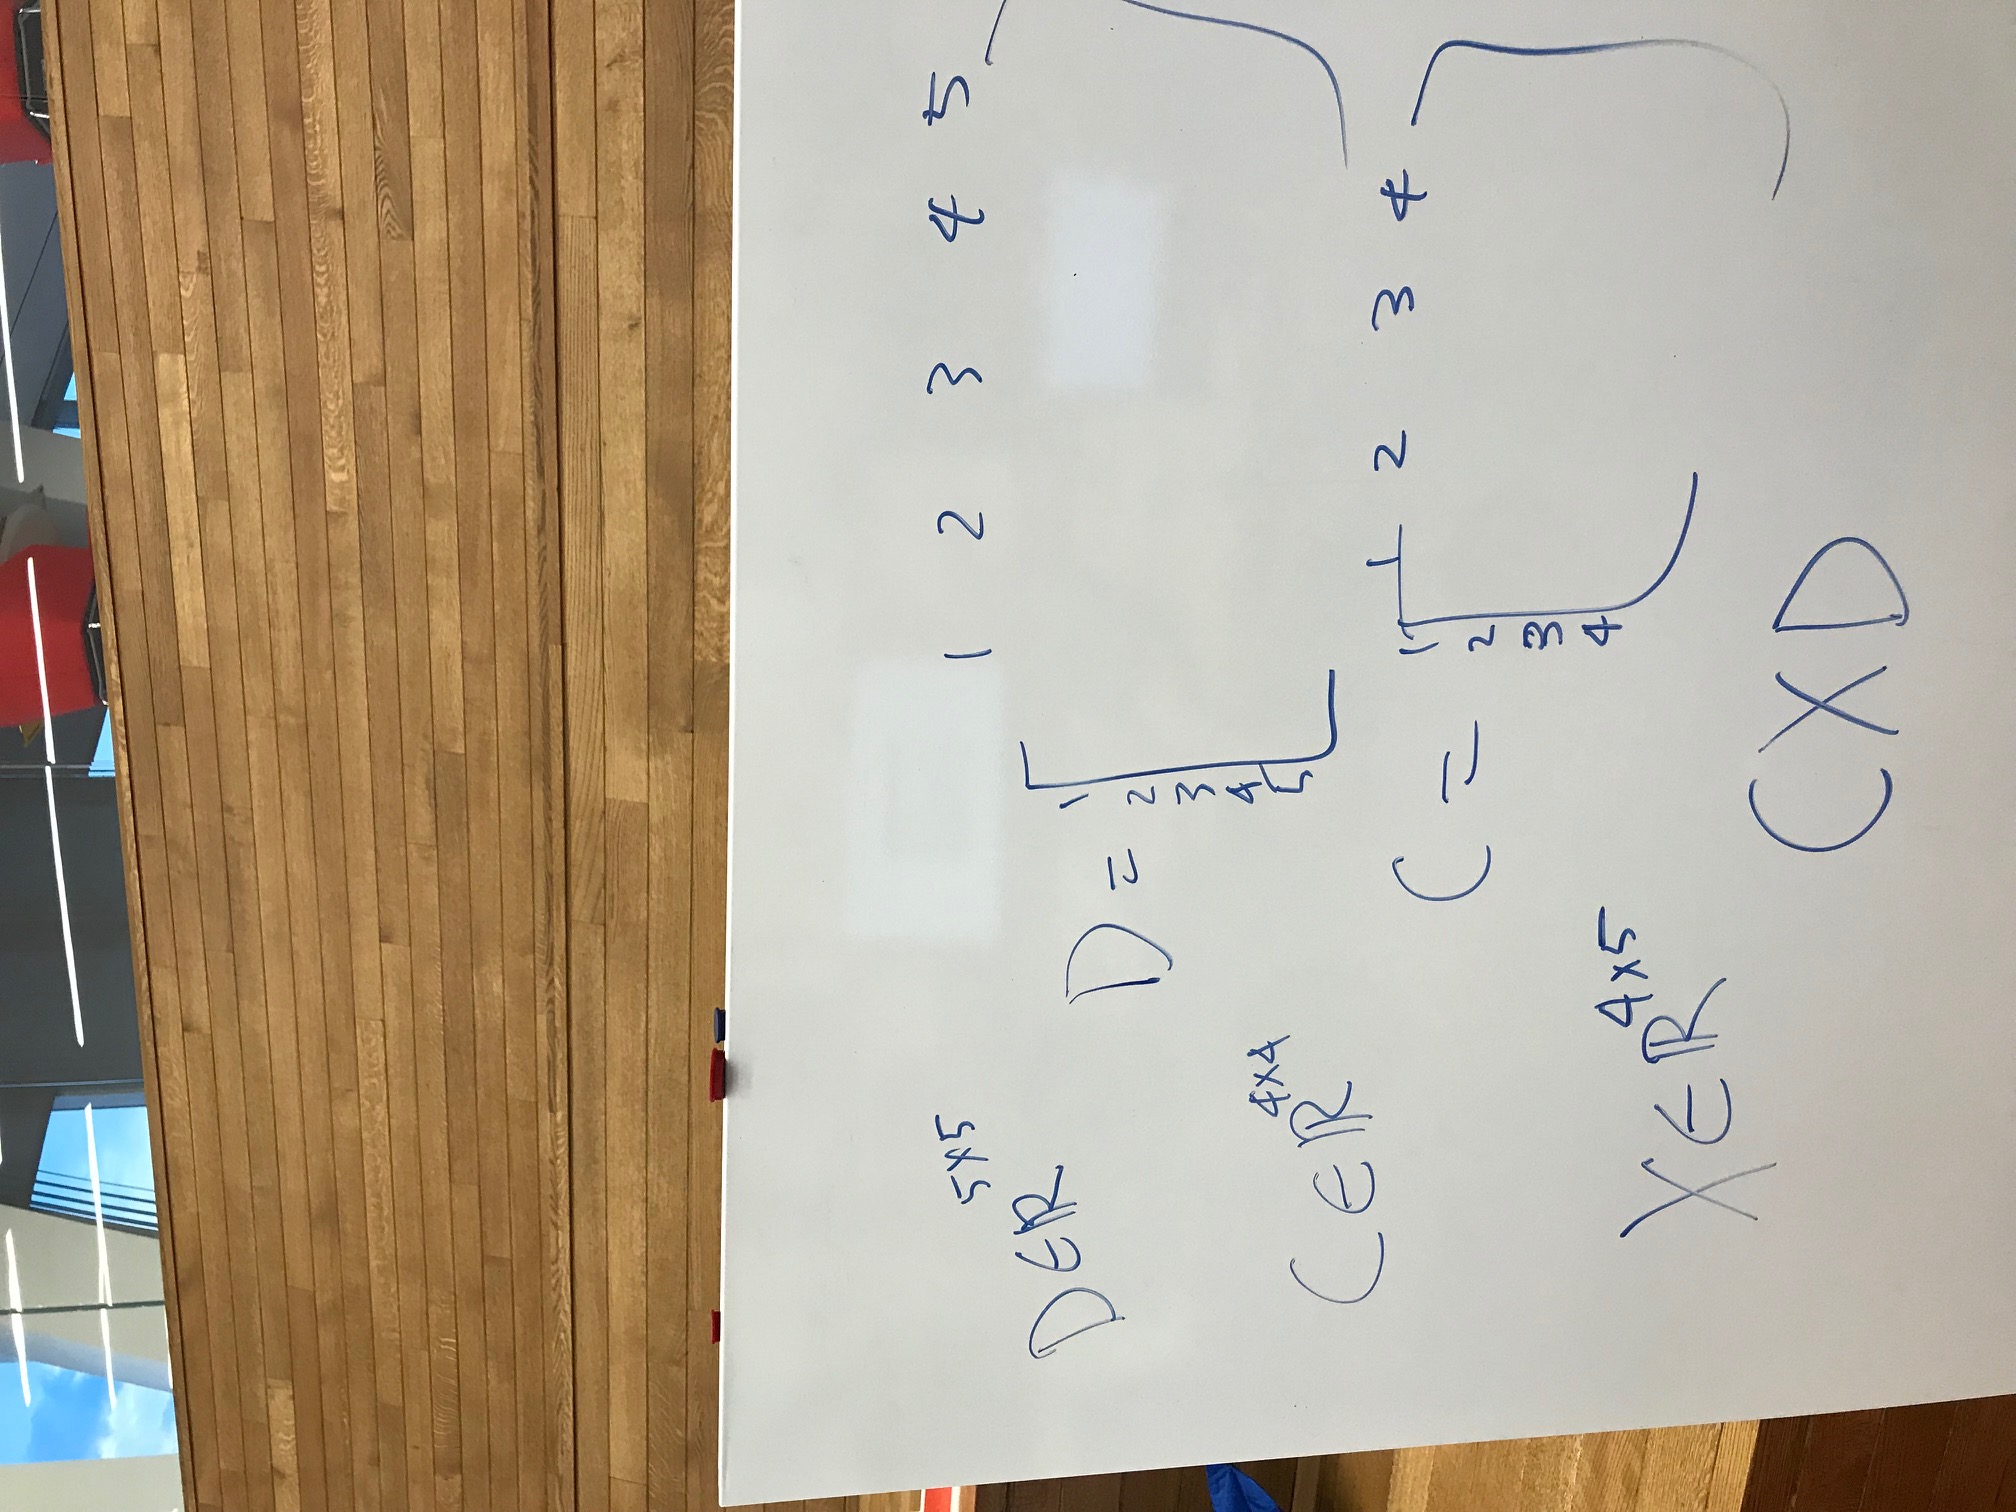 D∈ℝ^{5×5}
1 2 3 4 5
D =
1
2
3
4
5
C∈ℝ^{4×4}
1 2 3 4
C =
1
2
3
4
X∈ℝ^{4×5}
CXD